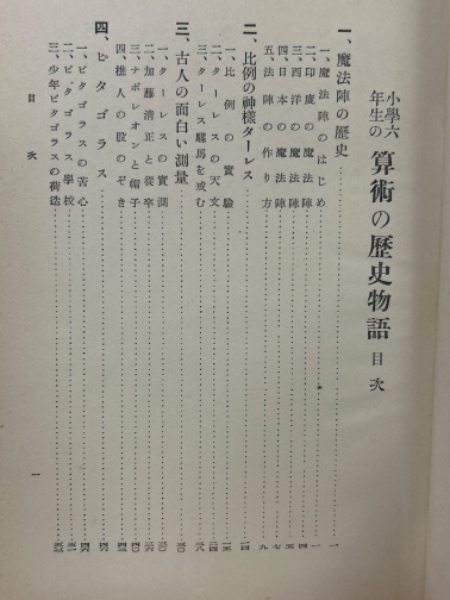 小學六年生の 算術の歷史物語 目次
一、魔法陣の歷史……一
一、魔法陣のはじめ……一
二、印度の魔法陣……四
三、西洋の魔法陣……五
四、日本の魔法陣……七
五、法陣の作り方……九
二、比例の神樣ターレス
一、比例の實驗
二、ターレスの天文
三、ターレス騾馬を戒む
三、古人の面白い測量……三〇
一、ターレスの實測……三〇
二、加藤清正と從卒
三、ナポレオンと帽子
四、樵人の股のぞき
四、ピタゴラス
一、ピタゴラスの苦心
二、ピタゴラス學校
三、少年ピタゴラスの荷造
目次
一